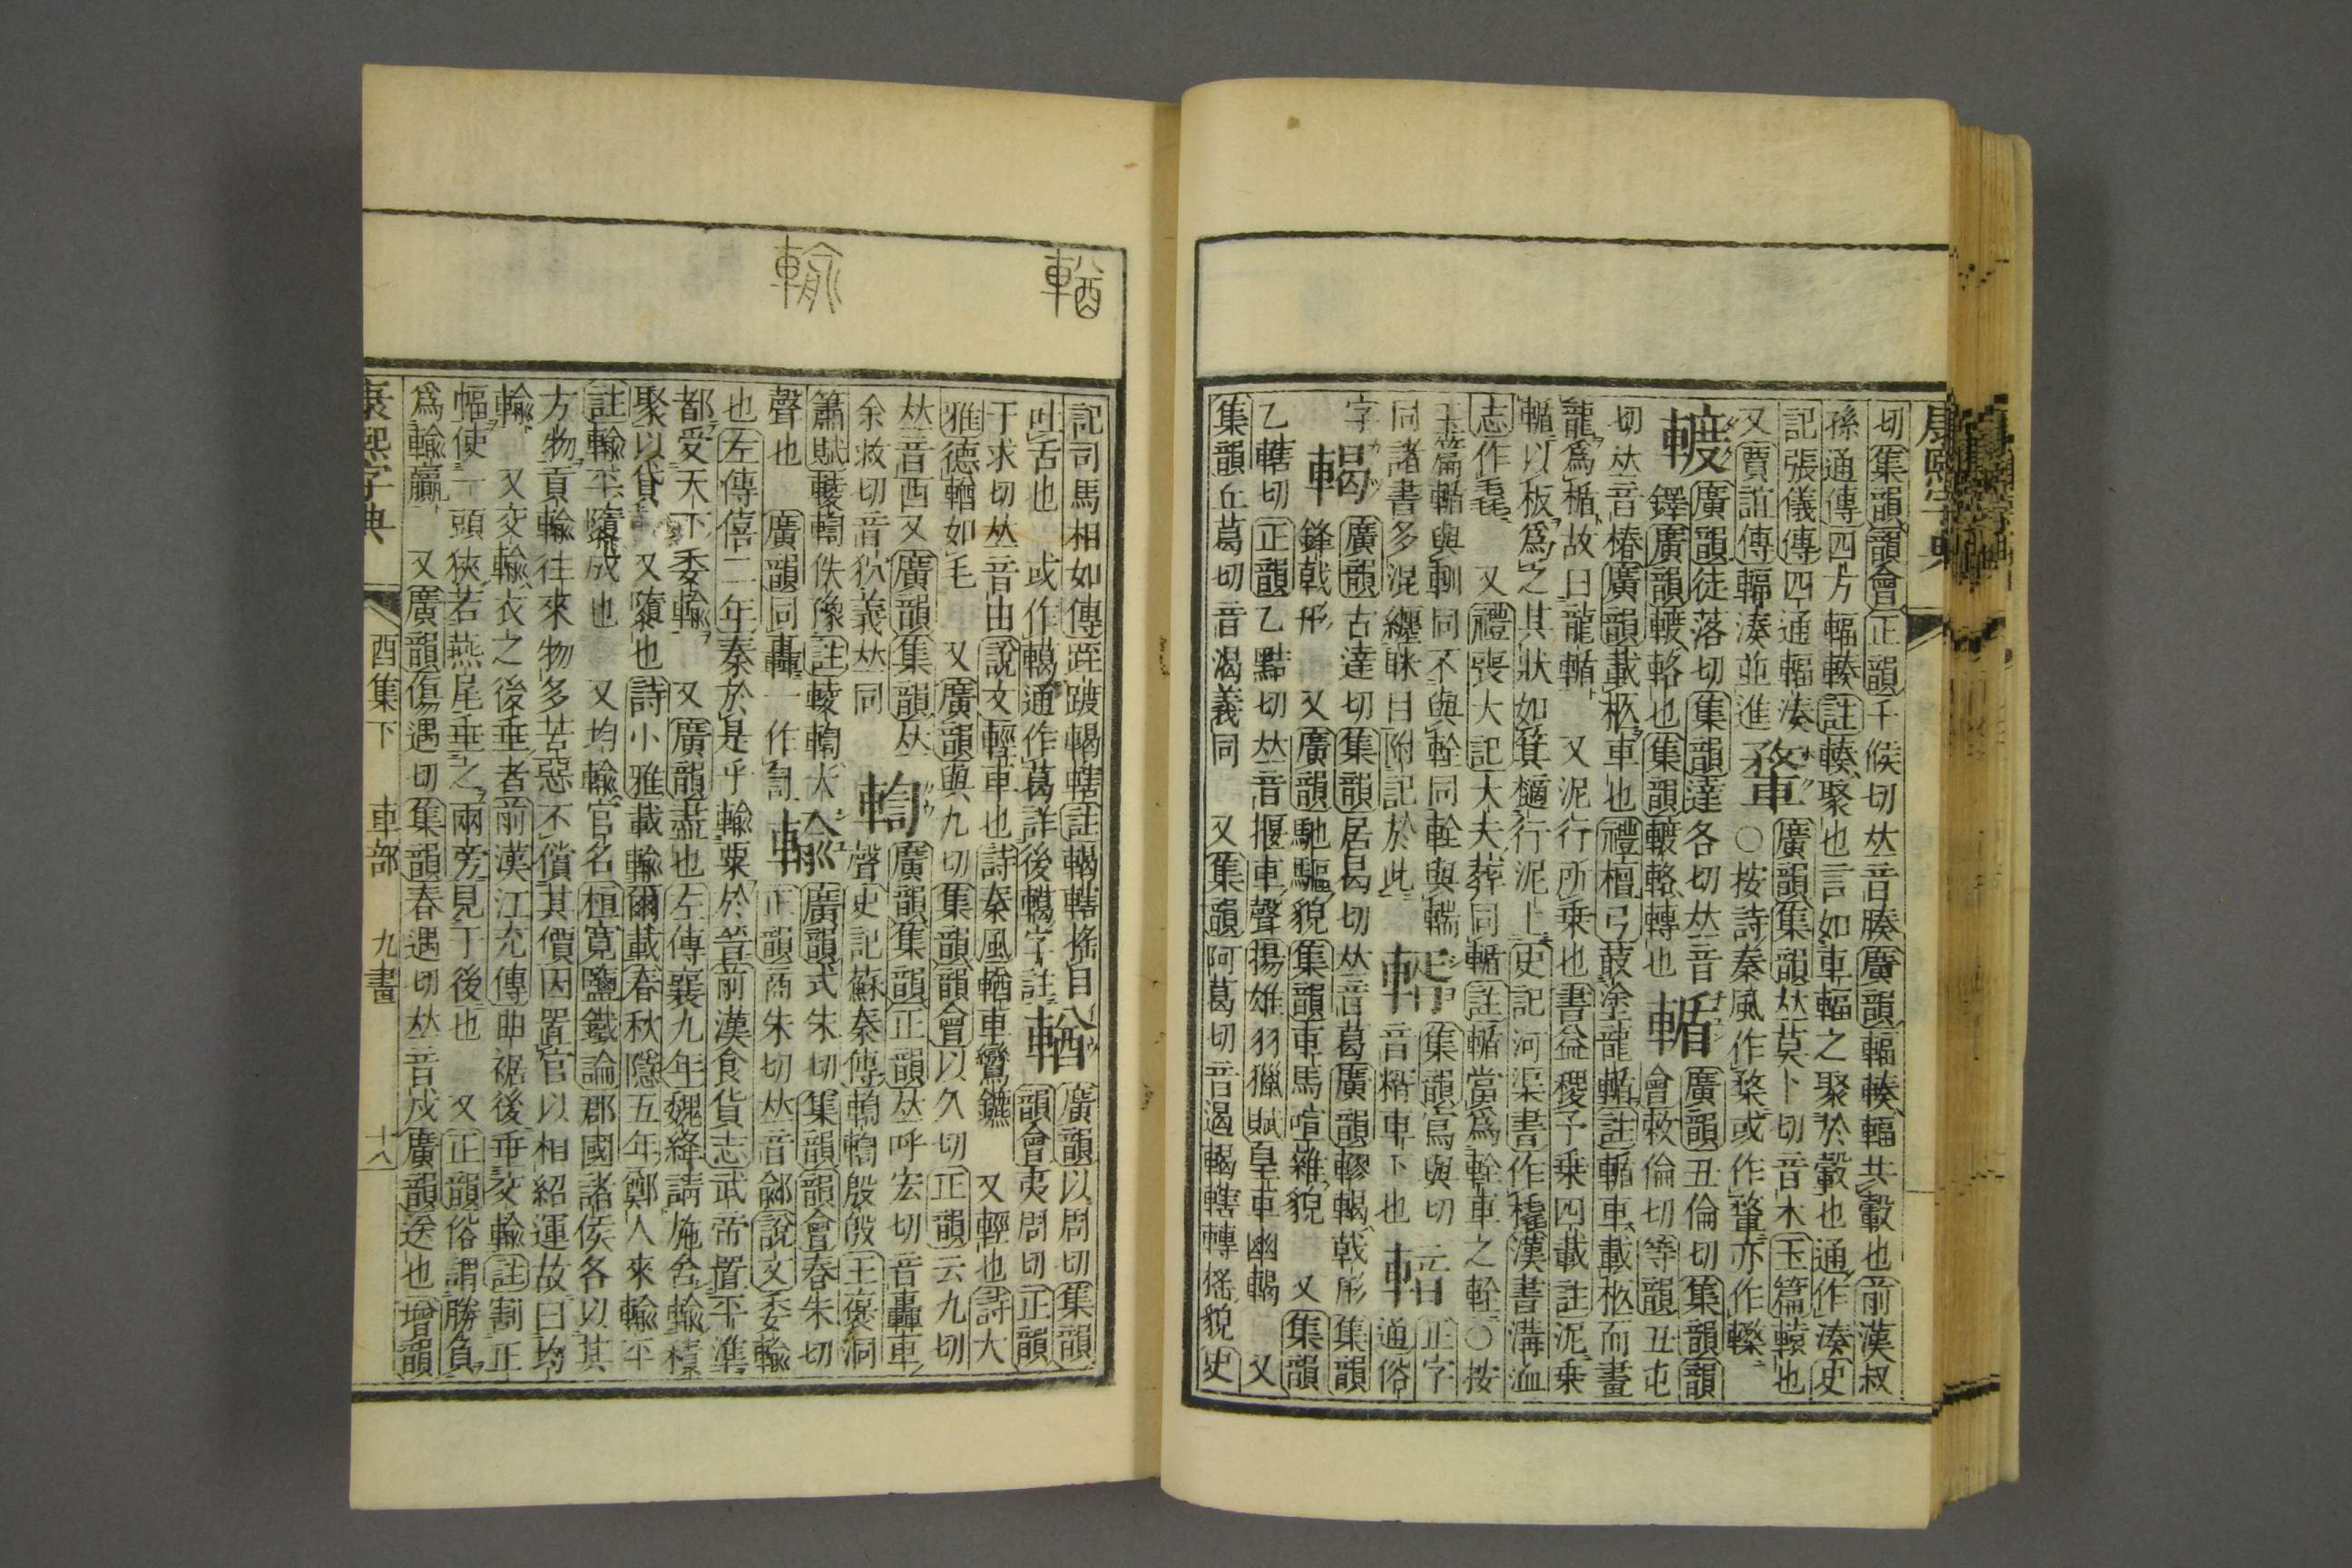 康熙字典
切集韻韻會正韻千候切𠀤音腠廣韻輻輳輻共轂也前漢叔
孫通傳四方輻輳註輳聚也言如車輻之聚於轂也通作湊史
記張儀傳四通輻湊
又賈誼傳輻湊並進
廣韻集韻𠀤莫卜切音木玉篇轅也
○按詩秦風作楘或作鞪亦作𨎢
廣韻徒落切集韻達各切𠀤音
鐸廣韻轅輅也集韻轅輅轉也
輴
廣韻丑倫切集韻韻
會敕倫切等韻丑屯
切𠀤音椿廣韻載柩車也禮檀弓菆塗龍輴註輴車載柩而畫
龍爲楯故曰龍輴 又泥行所乗也書益稷予乗四載註泥乗
輴以板爲之其狀如箕擿行泥上史記河渠書作橇漢書溝洫
志作毳 又禮喪大記大夫葬同輴註輴當爲輇車之輇○按
玉篇輴與輈同不與輇同輇與輲
同諸書多混纏眯目附記於此
集韻寫與切
音糈車下也
䡛
正字
通俗
字
轕
廣韻古達切集韻居曷切𠀤音葛廣韻轇轕戟形 集韻
鋒戟形 又廣韻馳驅貌集韻車馬喧雜貌 又集韻
乙轄切正韻乙黠切𠀤音揠車聲揚雄羽獵賦皇車幽輵 又
集韻丘葛切音渴義同 又集韻阿葛切音遏輵轄轉搖貌史
輶
輸
記司馬相如傳跮踱輵轄註輵轄搖目
吐舌也 或作轕通作葛詳後轕字註
輶
廣韻以周切集韻
韻會夷周切正韻
于求切𠀤音由說文輕車也詩秦風輶車鸞鑣 又輕也詩大
雅德輶如毛 又廣韻與九切集韻韻會以久切正韻云九切
𠀤音酉又廣韻集韻𠀤
余救切音狖義𠀤同
輷
廣韻集韻正韻𠀤呼宏切音轟車
聲史記蘇秦傳輷輷殷殷王褒洞
簫賦䡖輷佚豫註䡖輷大
聲也 廣韻同轟一作䡌
輸
廣韻式朱切集韻韻會春朱切
正韻商朱切𠀤音鄃說文委輸
也左傳僖二年秦於是乎輸粟於晉前漢食貨志武帝置平準
都受天下委輸 又廣韻盡也左傳襄九年魏絳請施舍輸積
聚以貸 又隳也詩小雅載輸爾載春秋隱五年鄭人來輸平
註輸平隳成也 又均輸官名桓寬鹽鐵論郡國諸侯各以其
方物貢輸往來物多苦惡不償其價因置官以相紹運故曰均
輸 又交輸衣之後垂者前漢江充傳曲裾後垂交輸註割正
幅使一頭狹若燕尾垂之兩旁見于後也 又正韻俗謂勝負
爲輸贏 又廣韻傷遇切集韻春遇切𠀤音戍廣韻送也增韻
康熙字典 酉集下 車部 九畫 十八